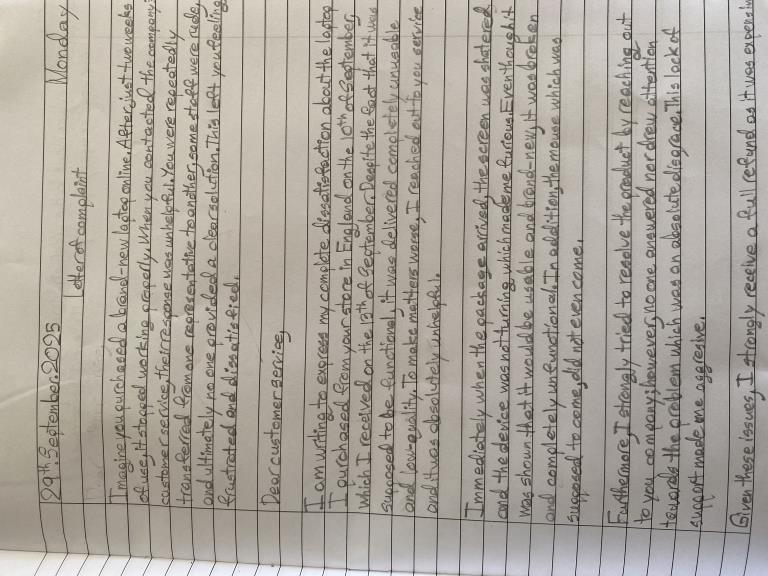 29th.September.2025 Monday
Letter of complaint
Imagine you purchased a brand-new laptop online. After just two weeks
of use, it stopped working properly. When you contacted the company's
customer service, their response was unhelpful. You were repeatedly
transferred from one representative to another, some staff were rude,
and ultimately no one provided a clear solution. This left you feeling
frustrated and dissatisfied.
Dear customer service,
I am writing to express my complete dissatisfaction about the laptop
I purchased from your store in England on the 10th of September,
which I received on the 13th of September. Despite the fact that it was
supposed to be functional, it was delivered completely unusable
and low-quality. To make matters worse, I reached out to you service
and it was absolutely unhelpful.
Immediately when the package arrived, the screen was shatered
and the device was not turning which made me furious. Even though it
was shown that it would be usable and brand-new, it was broken
and completely unfunctional. In addition, the mouse which was
supposed to come, did not even come.
Furthermore, I strongly tried to resolve the product by reaching out
to you company; however, no one answered nor drew attention
towards the problem which was an absolute disgrace. This lack of
support made me aggresive.
Given these issues, I strongly receive a full refund as it was expensive